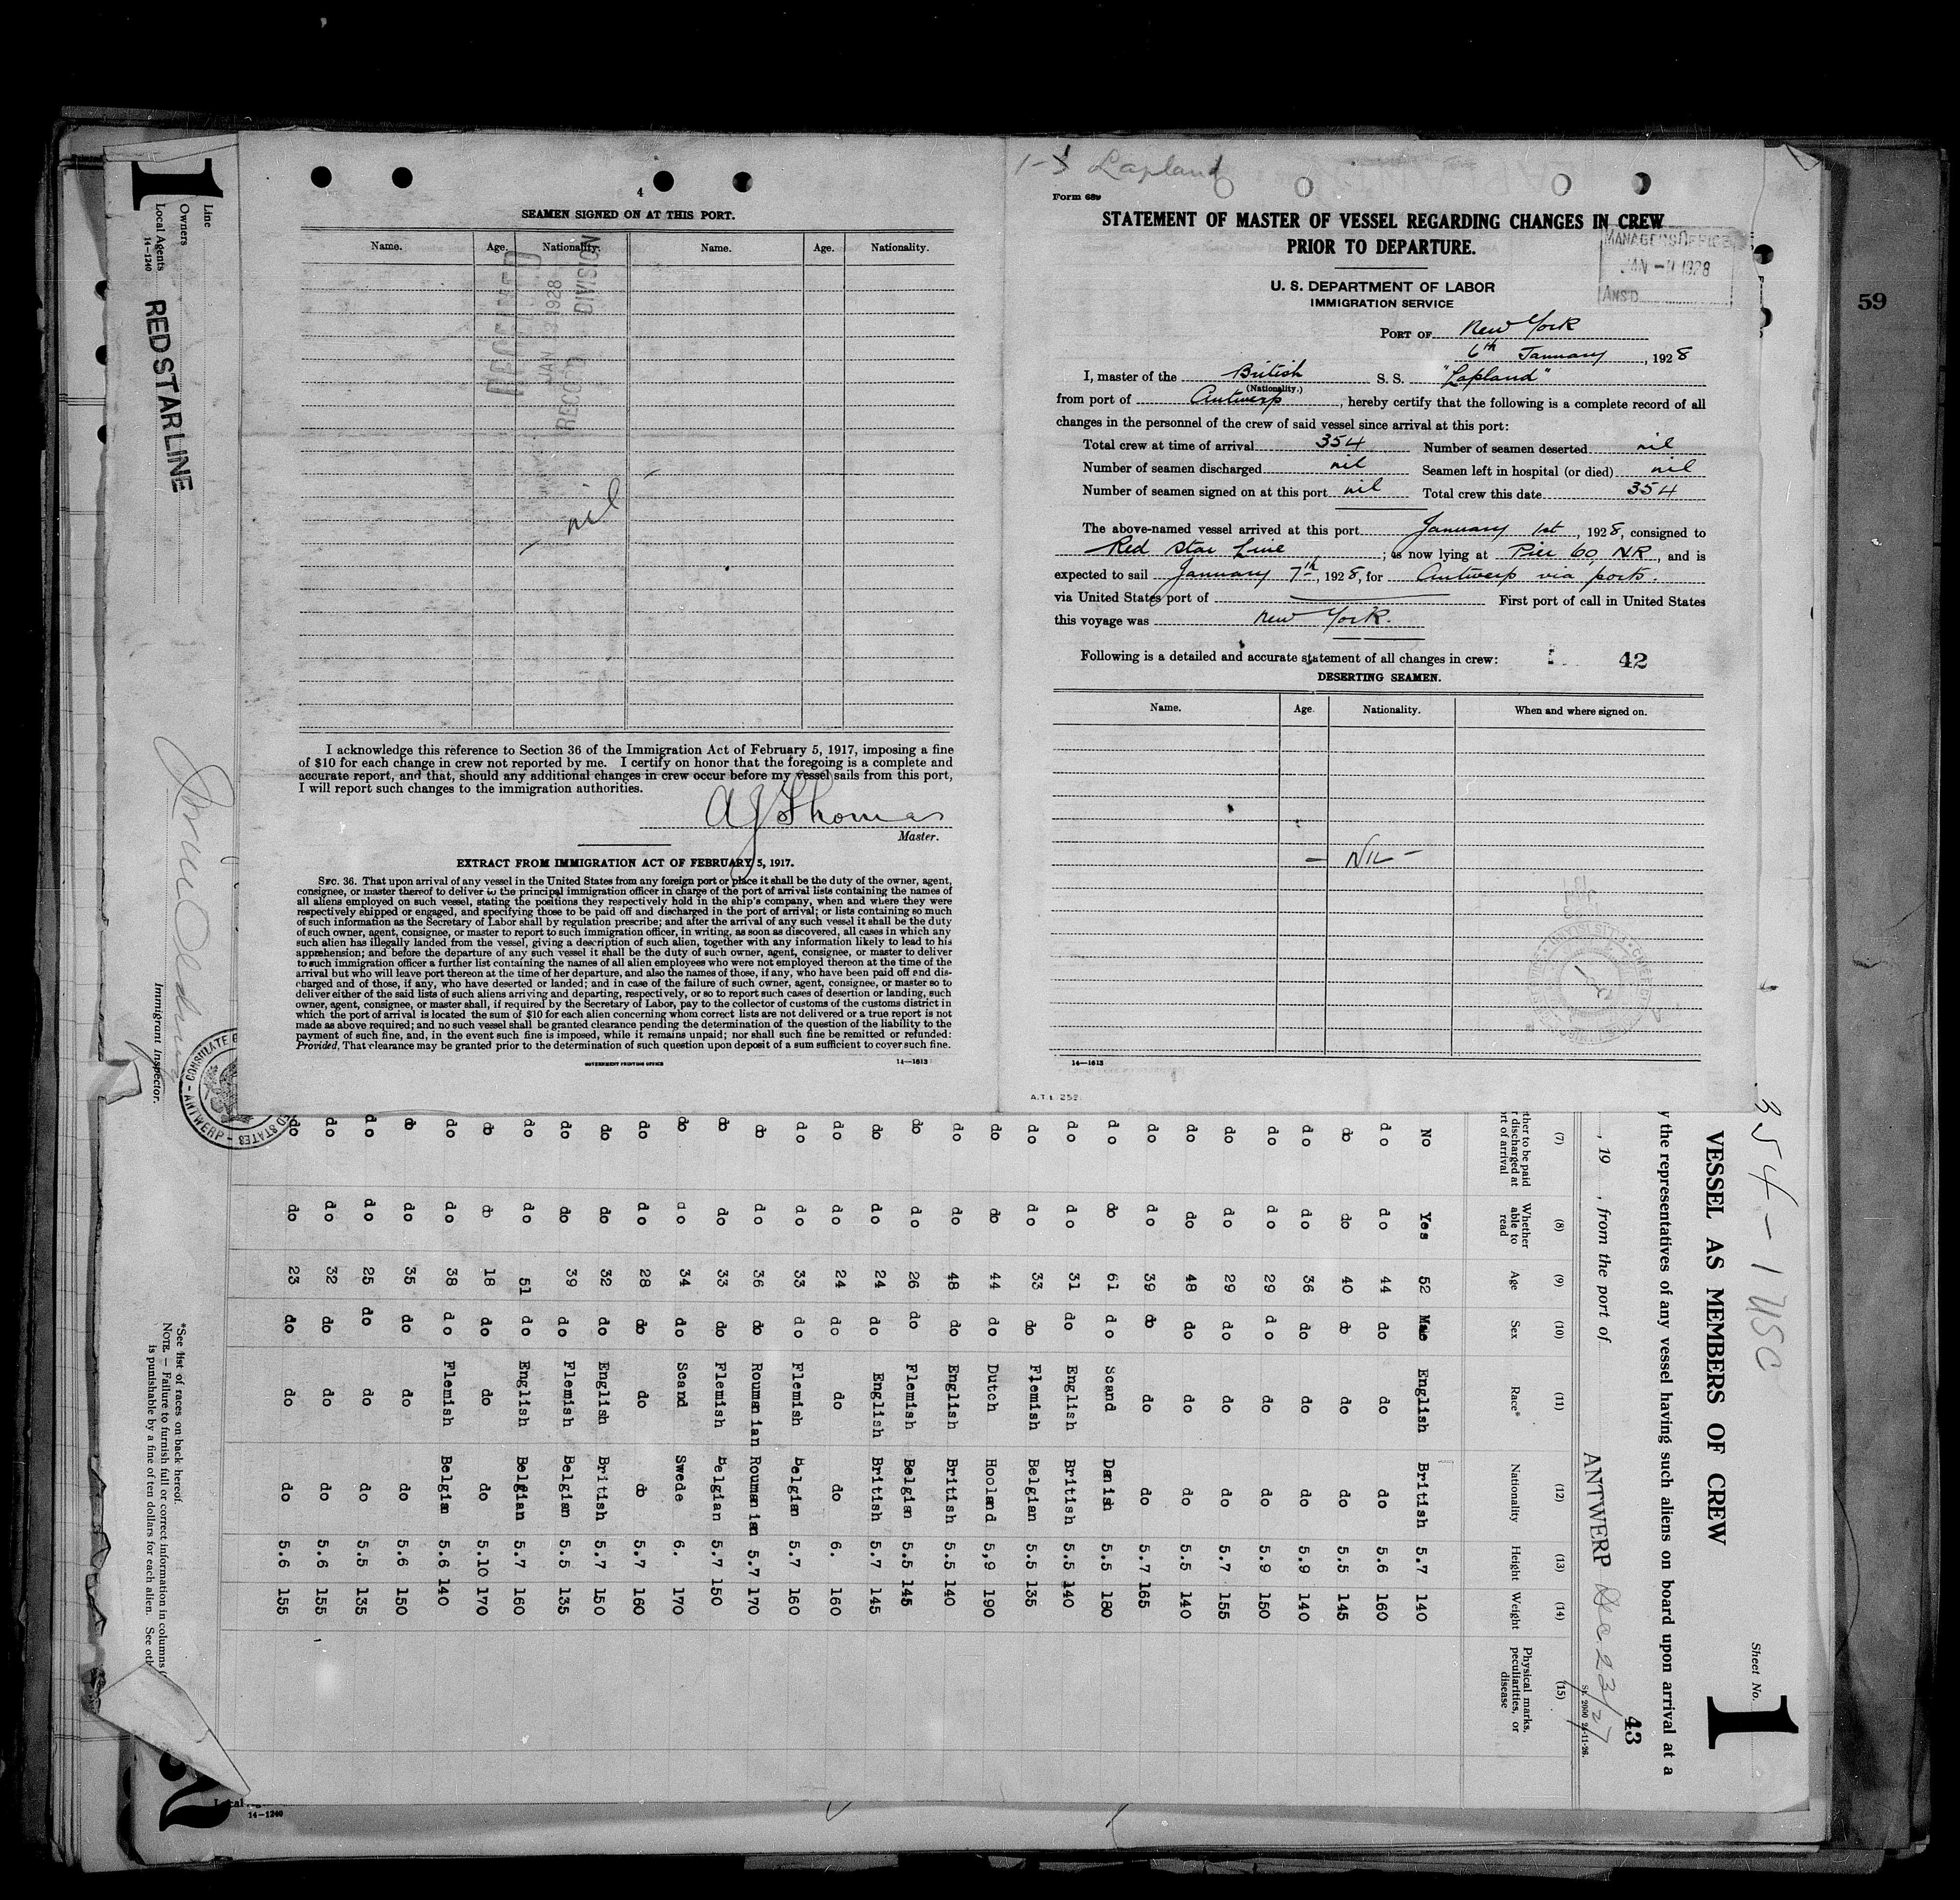 4
SEAMEN SIGNED ON AT THIS PORT.
Name. Age. Nationality. Name. Age. Nationality.
JAN 13 1928
RECORD DIVISION
nil
I acknowledge this reference to Section 36 of the Immigration Act of February 5, 1917, imposing a fine
of $10 for each change in crew not reported by me. I certify on honor that the foregoing is a complete and
accurate report, and that, should any additional changes in crew occur before my vessel sails from this port,
I will report such changes to the immigration authorities.
A J Thomas
Master.
EXTRACT FROM IMMIGRATION ACT OF FEBRUARY 5, 1917.
SEC. 36. That upon arrival of any vessel in the United States from any foreign port or place it shall be the duty of the owner, agent,
consignee, or master thereof to deliver to the principal immigration officer in charge of the port of arrival lists containing the names of
all aliens employed on such vessel, stating the positions they respectively hold in the ship's company, when and where they were
respectively shipped or engaged, and specifying those to be paid off and discharged in the port of arrival; or lists containing so much
of such information as the Secretary of Labor shall by regulation prescribe; and after the arrival of any such vessel it shall be the duty
of such owner, agent, consignee, or master to report to such immigration officer, in writing, as soon as discovered, all cases in which any
such alien has illegally landed from the vessel, giving a description of such alien, together with any information likely to lead to his
apprehension; and before the departure of any such vessel it shall be the duty of such owner, agent, consignee, or master to deliver
to such immigration officer a further list containing the names of all alien employees who were not employed thereon at the time of the
arrival but who will leave port thereon at the time of her departure, and also the names of those, if any, who have been paid off and dis-
charged and of those, if any, who have deserted or landed; and in case of the failure of such owner, agent, consignee, or master so to
deliver either of the said lists of such aliens arriving and departing, respectively, or so to report such cases of desertion or landing, such
owner, agent, consignee, or master shall, if required by the Secretary of Labor, pay to the collector of customs of the customs district in
which the port of arrival is located the sum of $10 for each alien concerning whom correct lists are not delivered or a true report is not
made as above required; and no such vessel shall be granted clearance pending the determination of the question of the liability to the
payment of such fine, and, in the event such fine is imposed, while it remains unpaid; nor shall such fine be remitted or refunded:
Provided, That clearance may be granted prior to the determination of such question upon deposit of a sum sufficient to cover such fine.
GOVERNMENT PRINTING OFFICE 14—1613
Lapland
Form 689
STATEMENT OF MASTER OF VESSEL REGARDING CHANGES IN CREW
PRIOR TO DEPARTURE.
MANAGERS OFFICE
1928
ANS'D
U. S. DEPARTMENT OF LABOR
IMMIGRATION SERVICE
PORT OF New York
6th January, 1928
I, master of the British S. S. "Lapland"
(Nationality.)
from port of Antwerp, hereby certify that the following is a complete record of all
changes in the personnel of the crew of said vessel since arrival at this port:
Total crew at time of arrival 354 Number of seamen deserted nil
Number of seamen discharged nil Seamen left in hospital (or died) nil
Number of seamen signed on at this port nil Total crew this date 354
The above-named vessel arrived at this port January 1st, 1928, consigned to
Red Star Line; is now lying at Pier 60 N.R., and is
expected to sail January 7th, 1928, for Antwerp via ports.
via United States port of First port of call in United States
this voyage was New York.
Following is a detailed and accurate statement of all changes in crew: 42
DESERTING SEAMEN.
Name. Age. Nationality. When and where signed on.
— NIL —
14—1613
59
1
Line
Owners
Local Agents
14-1240
RED STAR LINE
Immigrant Inspector.
CONSULATE
ANTWERP
*See list of races on back hereof.
NOTE.—Failure to furnish full or correct information in columns
is punishable by a fine of ten dollars for each alien. See
2
14—1240
354 – 1 USC
Sheet No. 1
VESSEL AS MEMBERS OF CREW
y the representatives of any vessel having such aliens on board upon arrival at a
43
, 19 , from the port of ANTWERP Dec. 23/27
(7) (8) (9) (10) (11) (12) (13) (14) (15)
ther to be paid
r discharged at
ort of arrival
Whether able to read
Age
Sex
Race*
Nationality
Height
Weight
Physical marks, peculiarities, or disease
No Yes 52 Male English British 5.7 140
do do 44 do do do 5.6 160
do do 40 do do do 5.5 145
do do 36 do do do 5.9 140
do do 29 do do do 5.9 150
do do 29 do do do 5.7 155
do do 48 do do do 5.5 140
do do 39 do do do 5.7 165
do do 61 do Scand Danish 5.5 180
do do 31 do English British 5.5 140
do do 33 do Flemish Belgian 5.5 135
do do 44 do Dutch Hooland 5,9 190
do do 48 do English British 5.5 140
do do 26 do Flemish Belgian 5.5 145
do do 24 do English British 5.7 145
do do 24 do do do 6. 160
do do 33 do Flemish Belgian 5.7 160
do do 36 do Roumanian Roumanian 5.7 170
do do 33 do Flemish Belgian 5.7 150
do do 34 do Scand Swede 6. 170
do do 28 do do do 5.7 160
do do 32 do English British 5.7 150
do do 39 do Flemish Belgian 5.5 135
do do 51 do English Belgian 5.7 160
do do 18 do do do 5.10 170
do do 38 do Flemish Belgian 5.6 140
do do 35 do do do 5.6 150
do do 25 do do do 5.5 135
do do 32 do do do 5.6 155
do do 23 do do do 5.6 155